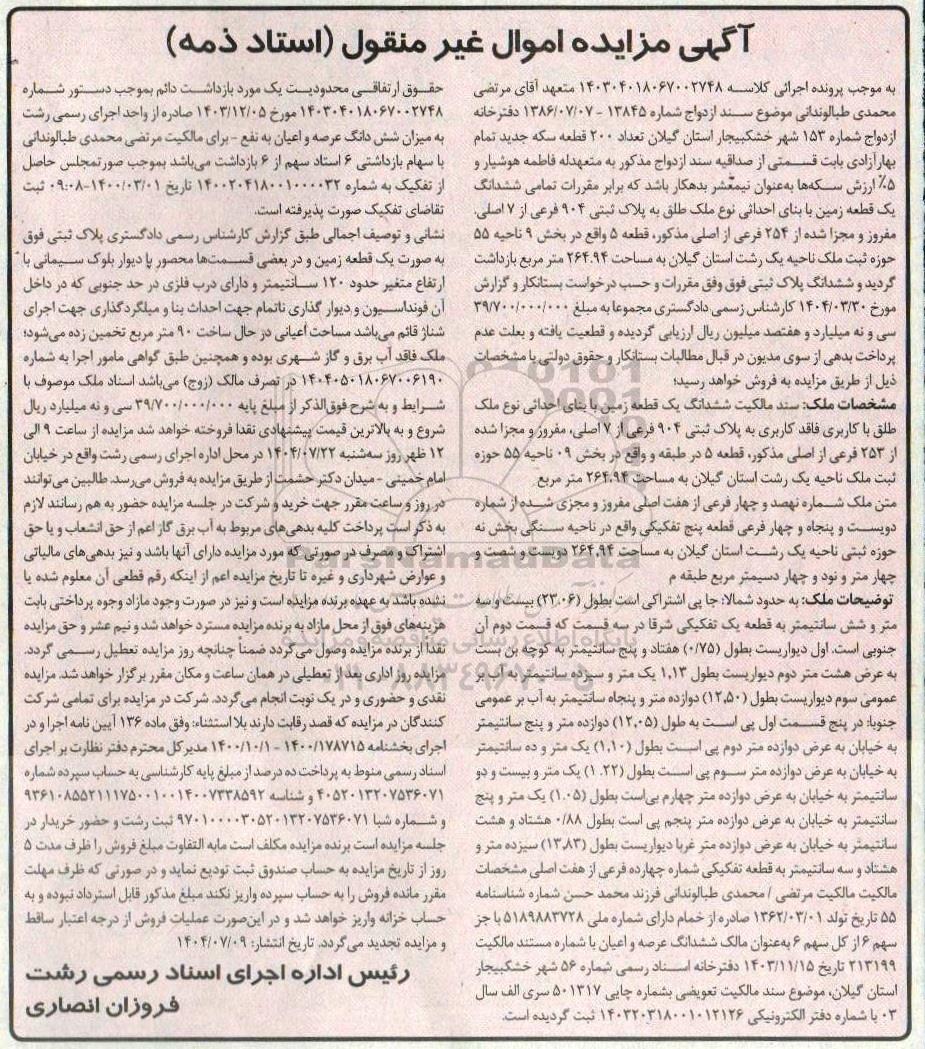 آگهی مزایده اموال غیر منقول (اسناد ذمه)
به موجب پرونده اجرائی کلاسه ۱۴۰۳۰۴۰۱۸۰۶۷۰۰۲۷۴۸ متعهد آقای مرتضی
محمدی طبالوندانی موضوع سند ازدواج شماره ۱۳۸۴۵ - ۱۳۸۶/۰۷/۰۷ دفترخانه
ازدواج شماره ۱۵۳ شهر خشکبیجار استان گیلان تعداد ۲۰۰ قطعه سکه جدید تمام
بهارآزادی بابت قسمتی از صداقیه سند ازدواج مذکور به متعهدله فاطمه هوشیار و
۵٪ ارزش سکه‌ها به‌عنوان نیمعشر بدهکار باشد که برابر مقررات تمامی ششدانگ
یک قطعه زمین با بنای احداثی نوع ملک طلق به پلاک ثبتی ۹۰۴ فرعی از ۷ اصلی.
مفروز و مجزا شده از ۲۵۴ فرعی از اصلی مذکور، قطعه ۵ واقع در بخش ۹ ناحیه ۵۵
حوزه ثبت ملک ناحیه یک رشت استان گیلان به مساحت ۲۶۴.۹۴ متر مربع بازداشت
گردید و ششدانگ پلاک ثبتی فوق وفق مقررات و حسب درخواست بستانکار و گزارش
مورخ ۱۴۰۴/۰۳/۳۰ کارشناس رسمی دادگستری مجموعا به مبلغ ۳۹/۷۰۰/۰۰۰/۰۰۰
سی و نه میلیارد و هفتصد میلیون ریال ارزیابی گردیده و قطعیت یافته و بعلت عدم
پرداخت بدهی از سوی مدیون در قبال مطالبات بستانکار و حقوق دولتی با مشخصات
ذیل از طریق مزایده به فروش خواهد رسید؛
مشخصات ملک: سند مالکیت ششدانگ یک قطعه زمین با بنای احداثی نوع ملک
طلق با کاربری فاقد کاربری به پلاک ثبتی ۹۰۴ فرعی از ۷ اصلی، مفروز و مجزا شده
از ۲۵۳ فرعی از اصلی مذکور، قطعه ۵ در طبقه و واقع در بخش ۰۹ ناحیه ۵۵ حوزه
ثبت ملک ناحیه یک رشت استان گیلان به مساحت ۲۶۴.۹۴ متر مربع
متن ملک شماره نهصد و چهار فرعی از هفت اصلی مفروز و مجزی شده از شماره
دویست و پنجاه و چهار فرعی قطعه پنج تفکیکی واقع در ناحیه سنگی بخش نه
حوزه ثبتی ناحیه یک رشت استان گیلان به مساحت ۲۶۴.۹۴ دویست و شصت و
چهار متر و نود و چهار دسیمتر مربع طبقه م
توضیحات ملک: به حدود شمالا: جا پی اشتراکی است بطول (۲۳.۰۶) بیست و سه
متر و شش سانتیمتر به قطعه یک تفکیکی شرقا در سه قسمت که قسمت دوم آن
جنوبی است. اول دیواریست بطول (۰/۷۵) هفتاد و پنج سانتیمتر به کوچه بن بست
به عرض هشت متر دوم دیواریست بطول ۱,۱۳ یک متر و سیزده سانتیمتر به آب بر
عمومی سوم دیواریست بطول (۱۲,۵۰) دوازده متر و پنجاه سانتیمتر به آب بر عمومی
جنوبا: در پنج قسمت اول پی است به طول (۱۲,۰۵) دوازده متر و پنج سانتیمتر
به خیابان به عرض دوازده متر دوم پی است بطول (۱,۱۰) یک متر و ده سانتیمتر
به خیابان به عرض دوازده متر سوم پی است بطول (۱.۲۲) یک متر و بیست و دو
سانتیمتر به خیابان به عرض دوازده متر چهارم پی‌است بطول (۱.۰۵) یک متر و پنج
سانتیمتر به خیابان به عرض دوازده متر پنجم پی است بطول ۰/۸۸ هشتاد و هشت
سانتیمتر به خیابان به عرض دوازده متر غربا دیواریست بطول (۱۳,۸۳) سیزده متر و
هشتاد و سه سانتیمتر به قطعه تفکیکی شماره چهارده فرعی از هفت اصلی مشخصات
مالکیت مالکیت مرتضی / محمدی طبالوندانی فرزند محمد حسن شماره شناسنامه
۵۵ تاریخ تولد ۱۳۶۲/۰۳/۰۱ صادره از خمام دارای شماره ملی ۵۱۸۹۸۸۳۷۲۸ با جز
سهم ۶ از کل سهم ۶ به‌عنوان مالک ششدانگ عرصه و اعیان با شماره مستند مالکیت
۲۱۳۱۹۹ تاریخ ۱۴۰۳/۱۱/۱۵ دفترخانه اسناد رسمی شماره ۵۶ شهر خشکبیجار
استان گیلان، موضوع سند مالکیت تعویضی بشماره چاپی ۵۰۱۳۱۷ سری الف سال
۰۳ با شماره دفتر الکترونیکی ۱۴۰۳۲۰۳۱۸۰۰۱۰۱۲۱۲۶ ثبت گردیده است.
حقوق ارتفاقی محدودیت یک مورد بازداشت دائم بموجب دستور شماره
۱۴۰۳۰۴۰۱۸۰۶۷۰۰۲۷۴۸ مورخ ۱۴۰۳/۱۲/۰۵ صادره از واحد اجرای رسمی رشت
به میزان شش دانگ عرصه و اعیان به نفع - برای مالکیت مرتضی محمدی طبالوندانی
با سهام بازداشتی ۶ استاد سهم از ۶ بازداشت می‌باشد بموجب صورتمجلس حاصل
از تفکیک به شماره ۱۴۰۰۲۰۴۱۸۰۰۱۰۰۰۰۳۲ تاریخ ۱۴۰۰/۰۳/۰۱-۰۹:۰۸ ثبت
تقاضای تفکیک صورت پذیرفته است.
نشانی و توصیف اجمالی طبق گزارش کارشناس رسمی دادگستری پلاک ثبتی فوق
به صورت یک قطعه زمین و در بعضی قسمت‌ها محصور با دیوار بلوک سیمانی با
ارتفاع متغیر حدود ۱۲۰ سانتیمتر و دارای درب فلزی در حد جنوبی که در داخل
آن فونداسیون و دیوار گذاری ناتمام جهت احداث بنا و میلگردگذاری جهت اجرای
شناژ قائم می‌باشد مساحت اعیانی در حال ساخت ۹۰ متر مربع تخمین زده می‌شود؛
ملک فاقد آب برق و گاز شهری بوده و همچنین طبق گواهی مامور اجرا به شماره
۱۴۰۴۰۵۰۱۸۰۶۷۰۰۶۱۹۰ در تصرف مالک (زوج) می‌باشد اسناد ملک موصوف با
شرایط و به شرح فوق‌الذکر از مبلغ پایه ۳۹/۷۰۰/۰۰۰/۰۰۰ سی و نه میلیارد ریال
شروع و به بالاترین قیمت پیشنهادی نقدا فروخته خواهد شد مزایده از ساعت ۹ الی
۱۲ ظهر روز سه‌شنبه ۱۴۰۴/۰۷/۲۲ در محل اداره اجرای رسمی رشت واقع در خیابان
امام خمینی - میدان دکتر حشمت از طریق مزایده به فروش می‌رسد. طالبین می‌توانند
در روز و ساعت مقرر جهت خرید و شرکت در جلسه مزایده حضور به هم رسانند لازم
به ذکر است پرداخت کلیه بدهی‌های مربوط به آب برق گاز اعم از حق انشعاب و یا حق
اشتراک و مصرف در صورتی که مورد مزایده دارای آنها باشد و نیز بدهی‌های مالیاتی
و عوارض شهرداری و غیره تا تاریخ مزایده اعم از اینکه رقم قطعی آن معلوم شده یا
نشده باشد به عهده برنده مزایده است و نیز در صورت وجود مازاد وجوه پرداختی بابت
هزینه‌های فوق از محل مازاد به برنده مزایده مسترد خواهد شد و نیم عشر و حق مزایده
نقدا از برنده مزایده وصول می‌گردد ضمناً چنانچه روز مزایده تعطیل رسمی گردد.
مزایده روز اداری بعد از تعطیلی در همان ساعت و مکان مقرر برگزار خواهد شد. مزایده
نقدی و حضوری و در یک نوبت انجام می‌گردد. شرکت در مزایده برای تمامی شرکت
کنندگان در مزایده که قصد رقابت دارند بلا استثناء: وفق ماده ۱۳۶ آیین نامه اجرا و در
اجرای بخشنامه ۱۴۰۰/۱۷۸۷۱۵ - ۱۴۰۰/۱۰/۱ مدیرکل محترم دفتر نظارت بر اجرای
اسناد رسمی منوط به پرداخت ده درصد از مبلغ پایه کارشناسی به حساب سپرده شماره
۴۰۵۲۰۱۳۲۰۷۵۳۶۰۷۱ و شناسه ۹۳۶۱۰۸۵۵۲۱۱۱۷۵۰۰۱۰۰۱۴۰۰۷۳۳۸۵۹۲
و شماره شبا ۹۷۰۱۰۰۰۰۳۰۵۲۰۱۳۲۰۷۵۳۶۰۷۱ ثبت رشت و حضور خریدار در
جلسه مزایده است برنده مزایده مکلف است مابه التفاوت مبلغ فروش را ظرف مدت ۵
روز از تاریخ مزایده به حساب صندوق ثبت تودیع نماید و در صورتی که ظرف مهلت
مقرر مانده فروش را به حساب سپرده واریز نکند مبلغ مذکور قابل استرداد نبوده و به
حساب خزانه واریز خواهد شد و در این‌صورت عملیات فروش از درجه اعتبار ساقط
و مزایده تجدید می‌گردد. تاریخ انتشار: ۱۴۰۴/۰۷/۰۹
رئیس اداره اجرای اسناد رسمی رشت
فروزان انصاری
ParsNamadData
پایگاه اطلاع رسانی مناقصه و مزایده
۰۲۱-۸۸۳۴۹۶۷۰-۵